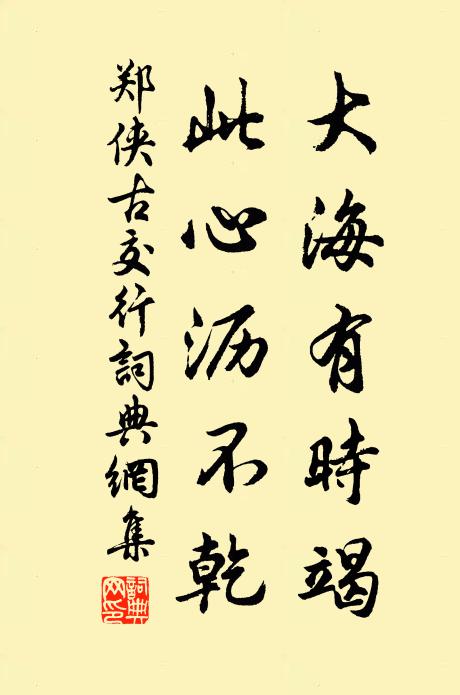 大海有時竭
此心沥不乾
郑侠古交行詞典網集
詞典
网印